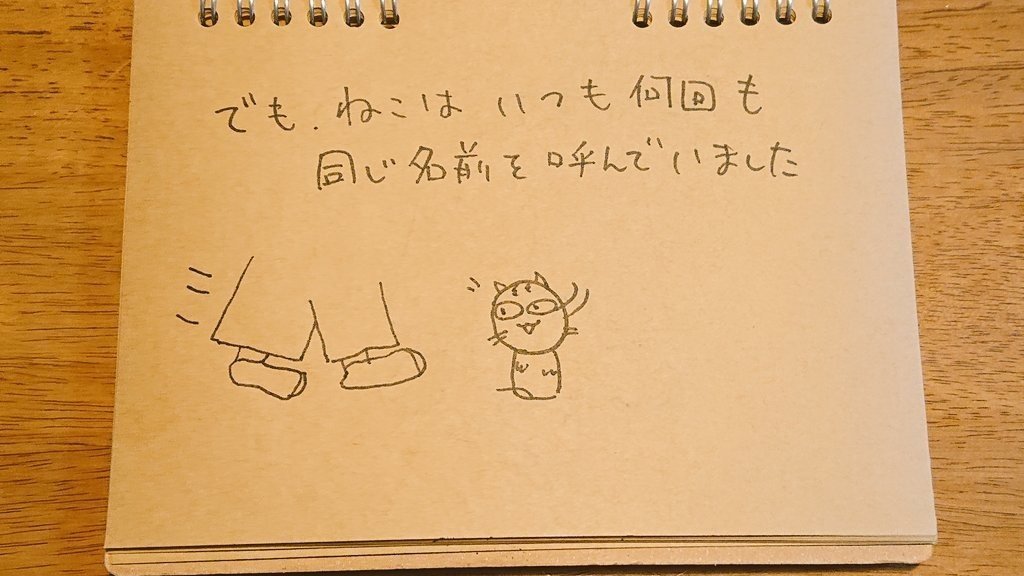 でも、ねこは いつも 何回も
同じ名前を呼んでいました